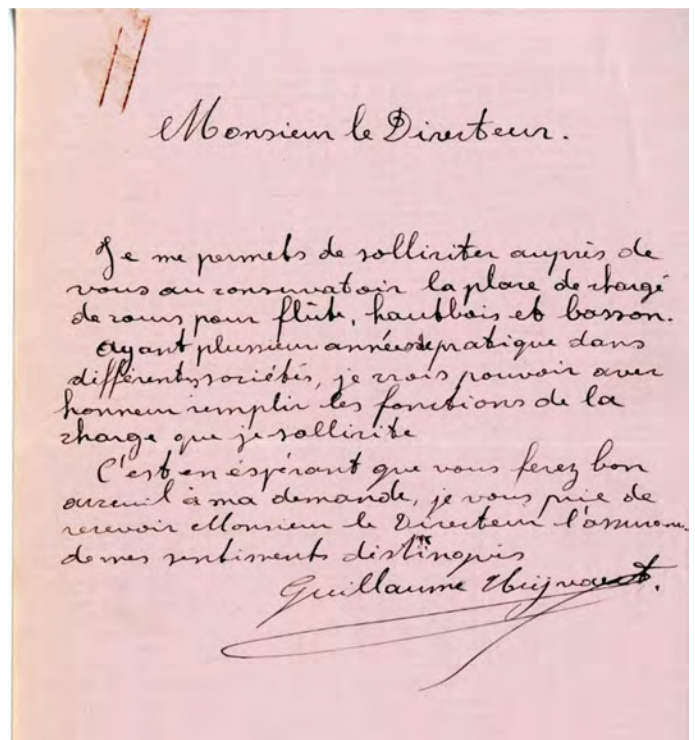 Monsieur le Directeur.
Je me permets de solliciter auprès de
vous au conservatoir la place de chargé
de cours pour flûte, hautbois et basson.
Ayant plusieur années de pratique dans
différents sociétés, je crois pouvoir avec
honneur remplir les fonctions de la
charge que je sollicite
C'est en éspérant que vous ferez bon
accueuil à ma demande, je vous prie de
recevoir Monsieur le Directeur l'assurance
de mes sentiments distingués
Guillaume